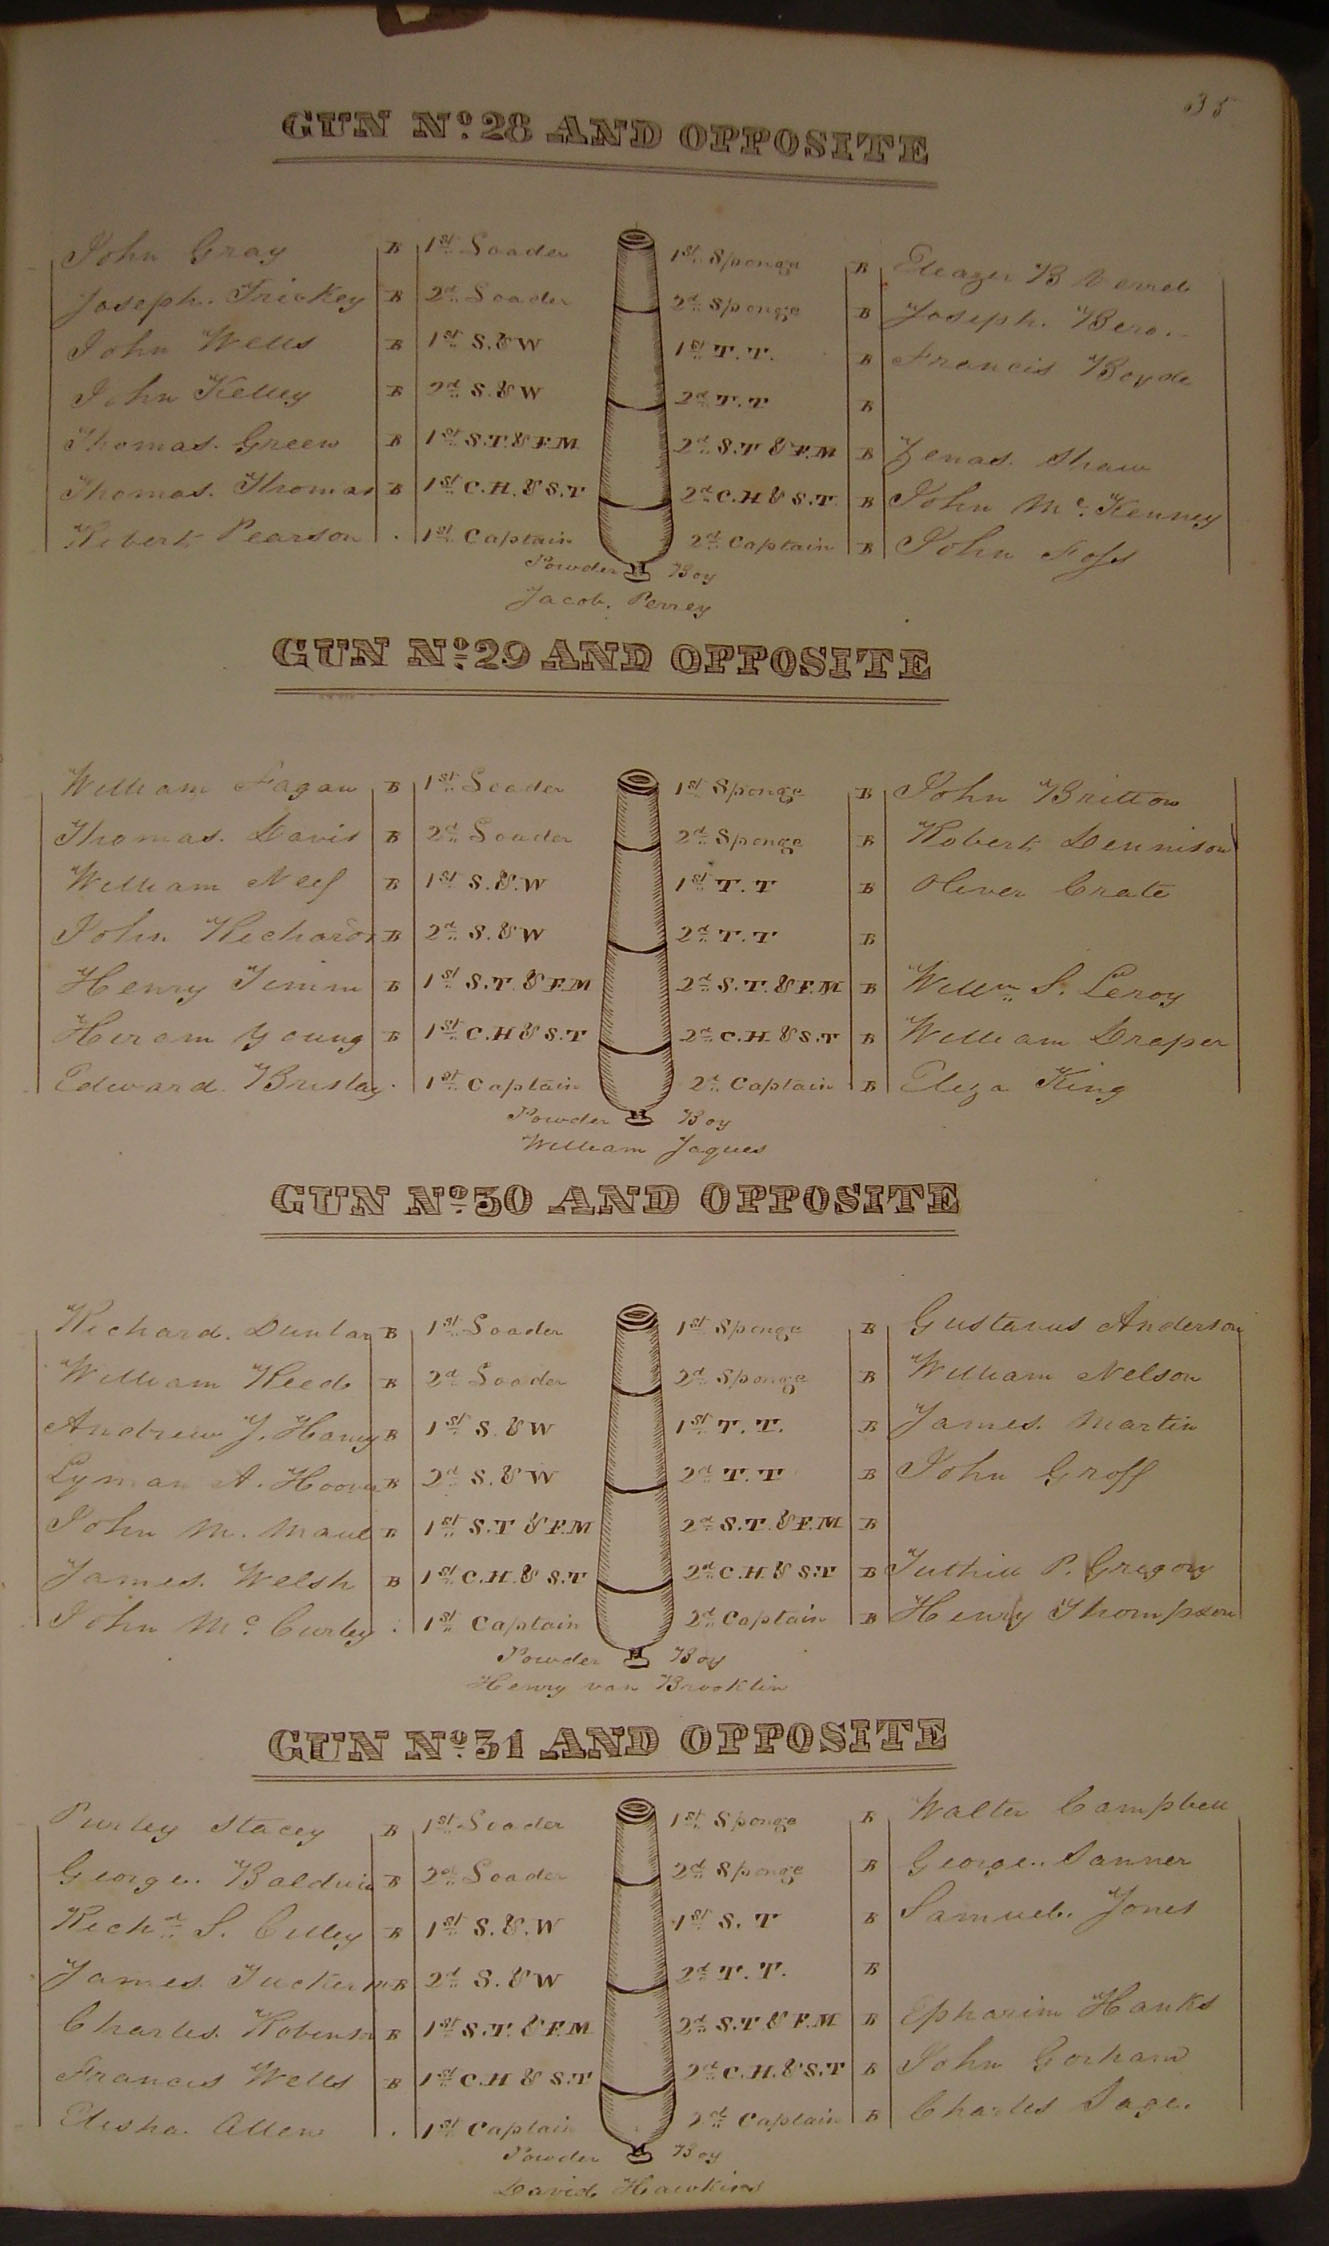 35
GUN No. 28 AND OPPOSITE
John Gray B 1st Loader 1st Sponge B Eleazer B
Joseph. Trickey B 2d Loader 2d Sponge B Joseph. Bero.
John Wells B 1st S. & W 1st T. T. B Francis Boyde
John Kelley B 2d S. & W 2d T. T B
Thomas. Green B 1st S.T. & F.M 2d S.T & F.M B Zenas. Shaw
Thomas. Thomas B 1st C.H. & S.T 2d C.H & S.T. B John Mc. Kenney
Robert Pearson . 1st Captain 2d Captain B John Foss
Powder Boy
Jacob. Perrey
GUN No. 29 AND OPPOSITE
William Fagan B 1st Loader 1st Sponge B John Britton
Thomas. Davis B 2d Loader 2d Sponge B Robert Dennison
William Neef B 1st S. & W 1st T. T B Oliver Crate
John Richards B 2d S. & W 2d T. T B
Henry Timm B 1st S.T. & F.M 2d S.T. & F.M B Willm S. Leroy
Hiram Young B 1st C.H & S.T 2d C.H & S.T B William Draper
Edward Brislay . 1st Captain 2d Captain B Eliza King
Powder Boy
William Jaques
GUN No. 30 AND OPPOSITE
Richard. Dunlap B 1st Loader 1st Sponge B Gustavus Anderson
William Reed B 2d Loader 2d Sponge B William Nelson
Andrew J. Haney B 1st S. & W 1st T. T. B James. Martin
Lyman A. Hoover B 2d S. & W 2d T. T B John Groff
John M. Maul B 1st S.T & F.M 2d S.T. & F.M B
James. Welsh B 1st C.H. & S.T 2d C.H & S.T B Tuthill P. Gregory
John Mc. Curley . 1st Captain 2d Captain B Henry Thompson
Powder Boy
Henry van Brooklin
GUN No. 31 AND OPPOSITE
Purley Stacey B 1st Loader 1st Sponge B Walter Campbell
George. Baldwin B 2d Loader 2d Sponge B George. Sanner
Richd. S. Cilley B 1st S. & W 1st S. T B Samuel. Jones
James. Tucker B 2d S. & W 2d T. T. B
Charles. Robinson B 1st S.T. & F.M 2d S.T & F.M B Epharim Hanks
Francis Wells B 1st C.H & S.T 2d C.H. & S.T B John Gorham
Elisha. Allen . 1st Captain 2d Captain B Charles Sage.
Powder Boy
David Hawkins